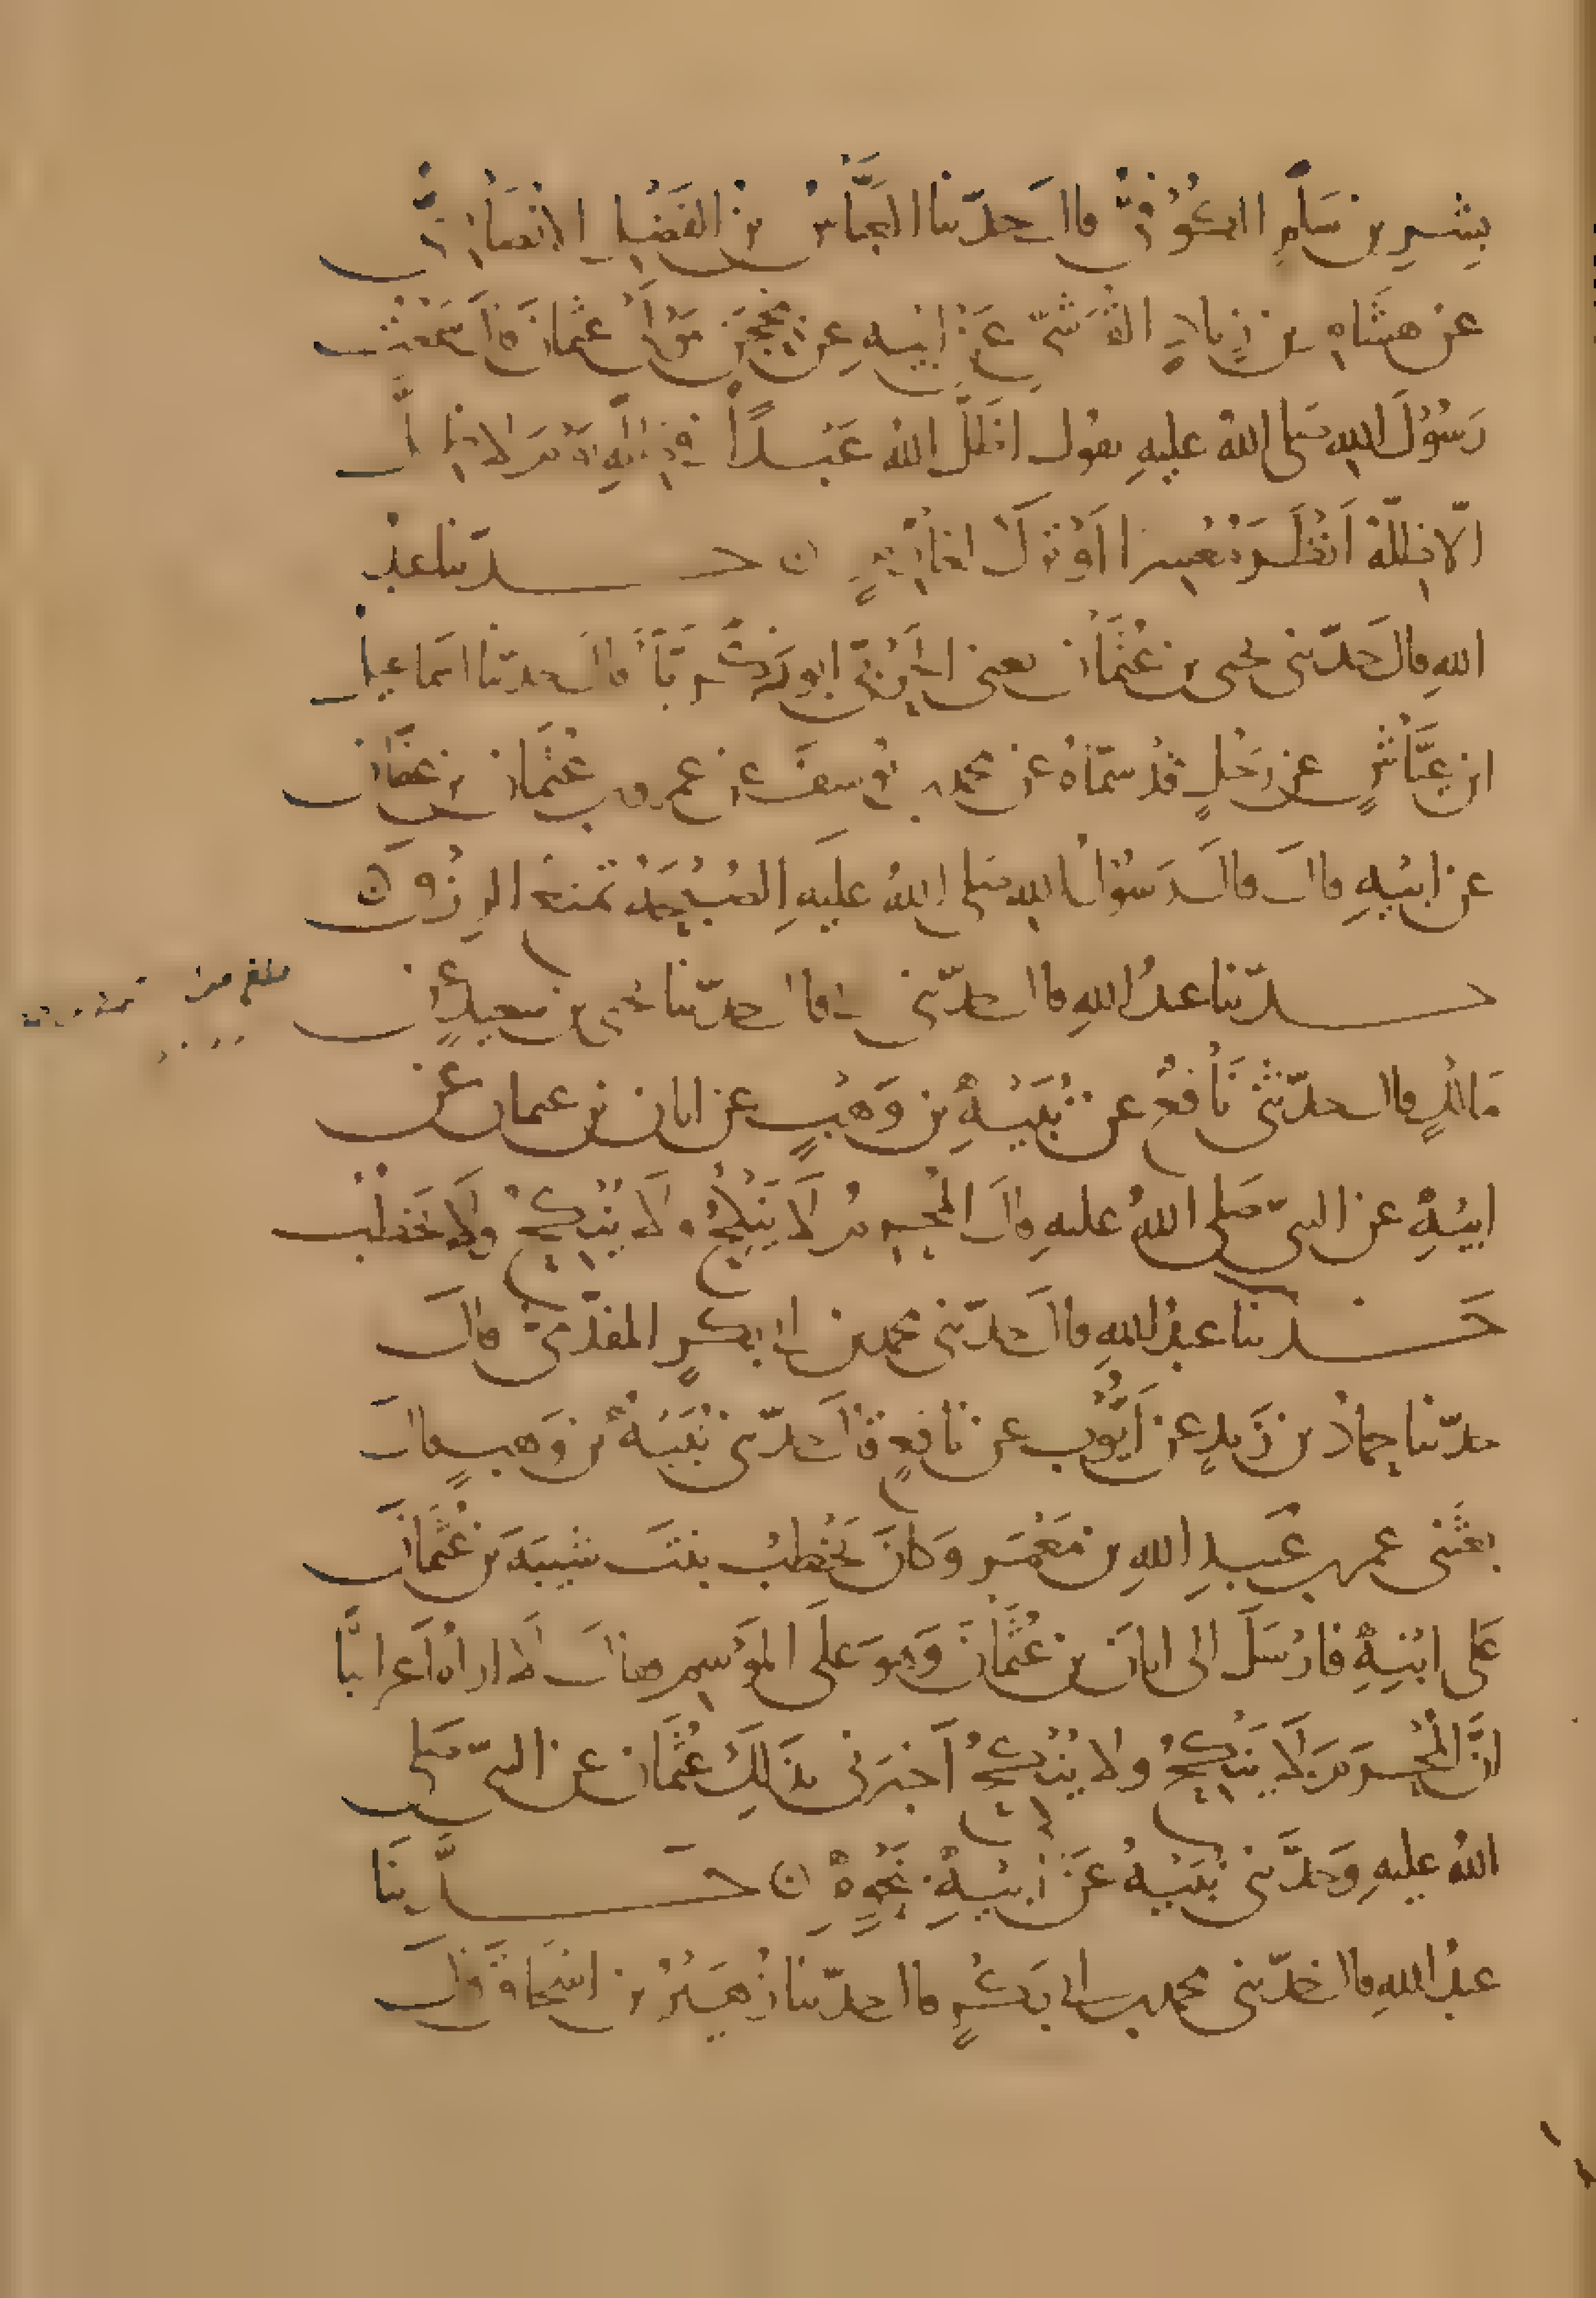 بِشْرِ بن سَلْمٍ الكُوْفيُّ قال حدّثنا العبَّاسُ بنُ الفَضْلِ الانْصَارِيُّ
عن هشَامِ بن زِيادٍ القُرَشيّ عَنْ ابيْهِ عن مِحْجَنٍ مَوْلَى عثمانَ قال سَمعْتُ
رَسُوْلَ اللهِ صلى اللهُ عليهِ يقول اظَلَّ اللهُ عَبْداً في ظِلِّهِ يَوْمَ لا ظِلَّ
الّا ظِلُّهُ اَنْظَرَ مُعْسِرا اَوْ تَرَكَ لغَارِمٍ ن حـدّثنا عبدُ
اللهِ قال حَدّثني يحيى بن عُثْمَانَ يعني الحَرْبيّ ابو زكريَّا قال حدّثنا اسماعيل
ابن عيَّاشٍ عن رَجُلٍ قدْ سمّاهُ عن محمد بن يُوْسفَ عن عمرو بن عُثْمان بن عفّان
عن ابيْهِ قال قال رسُوْلُ اللهِ صلى اللهُ عليهِ الصُبْحَةُ تمنعُ الرِزْقَ ن
حـدّثنا عبدُ اللهِ قال حدّثني ابي قال حدّثنا يحيى بن سعيدٍ عن
مَالكٍ قال حدّثني نَافعٌ عن نُبَيْهِ بن وَهْبٍ عن ابان بن عثمان عن
ابيْهِ عن النبيّ صَلى اللهُ عليهِ قالَ المُحْرِمُ لَا يَنْكِحُ ولا يُنْكِحُ ولا يَخْطُبُ
حَـدّثنا عبدُ اللهِ قال حدّثني محمد بن ابي بكرٍ المقدّميُّ قالَ
حدّثنا حمادُ بن زَيدٍ عن اَيُّوْبَ عن نافعٍ قال حدّثني نُبَيْهُ بن وَهبٍ قالَ
بعثَني عمر بن عُبَيدِ اللهِ بن مَعْمَرٍ وَكانَ يَخْطُبُ بنتَ شيبَةَ بن عُثْمَانَ
عَلى ابْنِهِ فارْسَلَ الى ابانَ بن عُثْمَانَ وَهوَ عَلَى المَوْسِمِ فقالَ اَلا اراهُ اَعرابيًّا
انَّ المُحْرِمَ لَا يَنْكِحُ ولا يُنْكِحُ اَخبَرني بذَلِكَ عُثْمَان عن النبيّ صَلى
اللهُ عليهِ وَحدَّثني نُبَيْهٌ عَنْ اَبيْهِ بنَحْوِهِ ن حَـدَّثنَا
عبدُ اللهِ قال حَدّثني محمد بن ابي بَكْرٍ قال حدّثنا زُهَيْرُ بن اسْحَاقَ قالَ